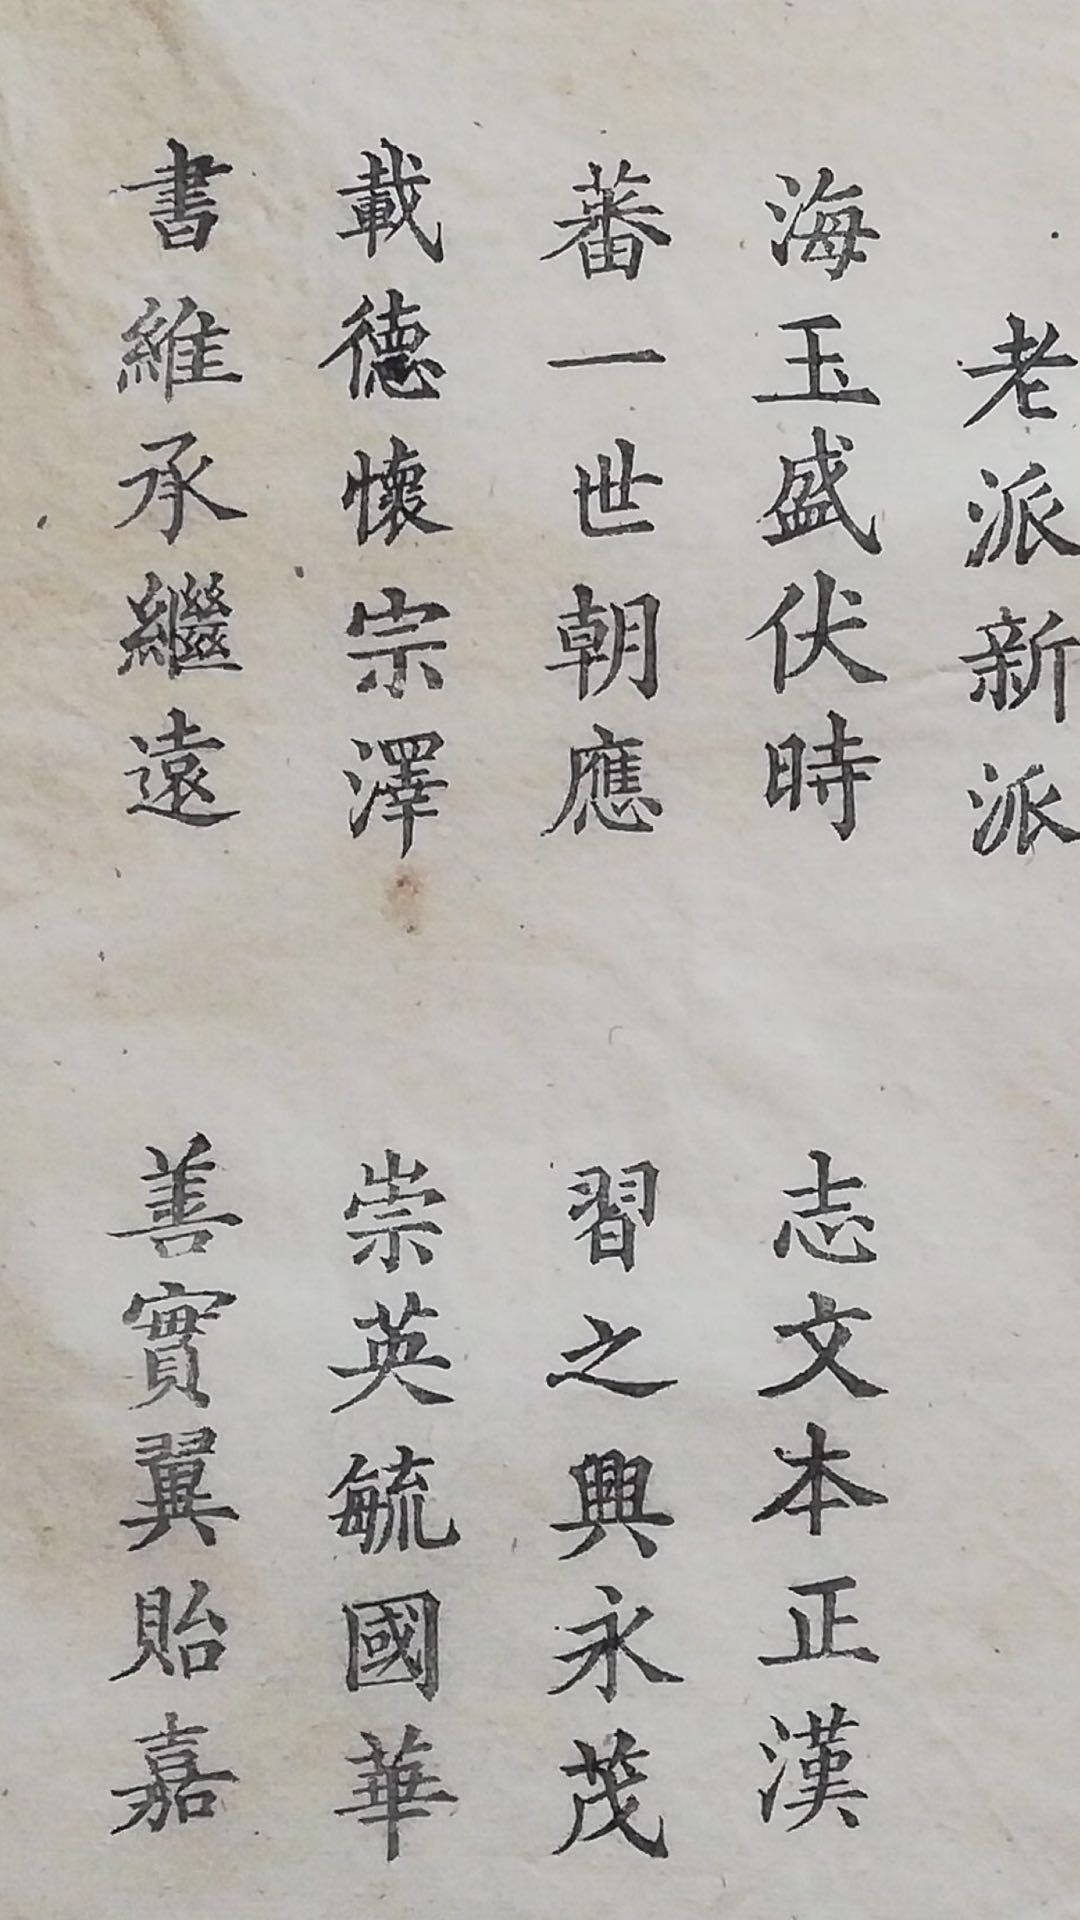 老派新派
海玉盛伏時
志文本正漢
蕃一世朝應
習之興永茂
載德懷宗澤
崇英毓國華
書維承繼遠
善實翼貽嘉